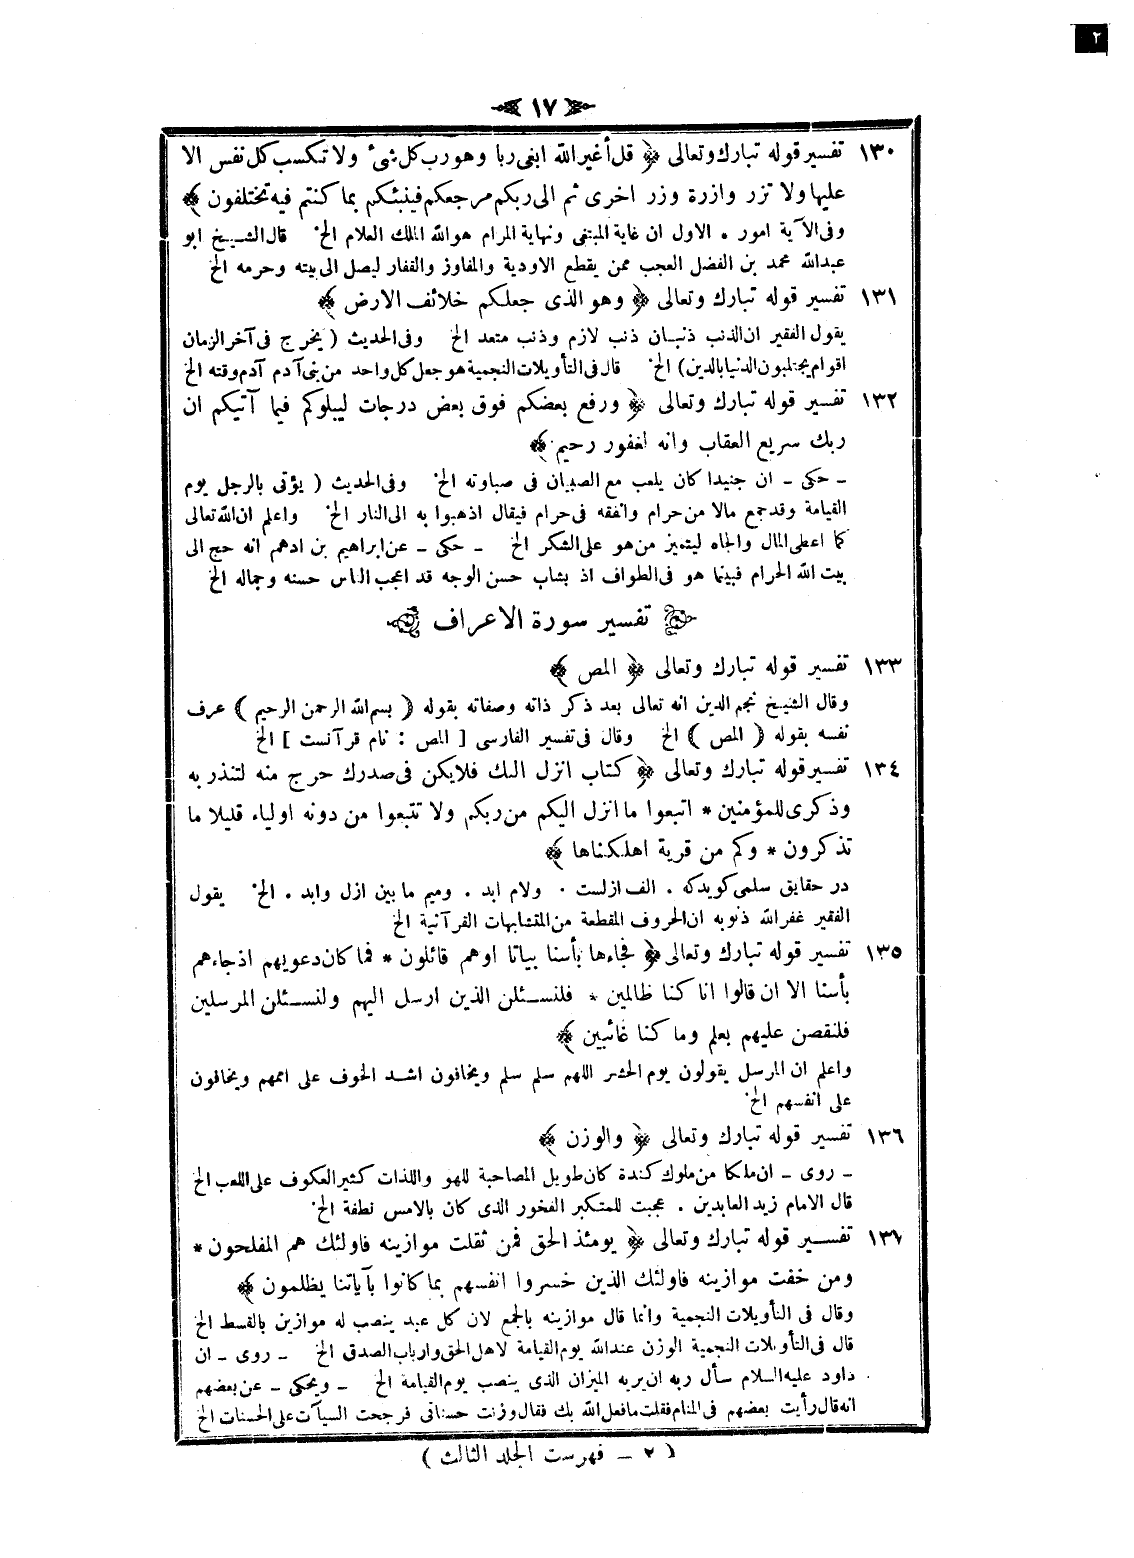 ٢
١٧
١٣٠ تفسير قوله تبارك وتعالى ﴿ قل أغير الله ابغى ربا وهو رب كل شىء ولا تكسب كل نفس الا
عليها ولا تزر وازرة وزر اخرى ثم الى ربكم مرجعكم فينبئكم بما كنتم فيه تختلفون ﴾
وفى الآية امور . الاول ان غاية المبتغى ونهاية المرام هو الله الملك العلام الخ قال الشيخ ابو
عبدالله محمد بن الفضل العجب ممن يقطع الاودية والمفاوز والقفار ليصل الى بيته وحرمه الخ
١٣١ تفسير قوله تبارك وتعالى ﴿ وهو الذى جعلكم خلائف الارض ﴾
يقول الفقير ان الذنب ذنبان ذنب لازم وذنب متعد الخ وفى الحديث ( يخرج فى آخر الزمان
اقوام يجتلبون الدنيا بالدين ) الخ قال فى التأويلات النجمية هو جعل كل واحد من بنى آدم آدم وقته الخ
١٣٢ تفسير قوله تبارك وتعالى ﴿ ورفع بعضكم فوق بعض درجات ليبلوكم فيما آتيكم ان
ربك سريع العقاب وانه لغفور رحيم ﴾
ـ حكى ـ ان جنيدا كان يلعب مع الصبيان فى صباوته الخ وفى الحديث ( يؤتى بالرجل يوم
القيامة وقد جمع مالا من حرام وانفقه فى حرام فيقال اذهبوا به الى النار الخ واعلم ان الله تعالى
كما اعطى المال والجاه ليتميز من هو على الشكر الخ ـ حكى ـ عن ابراهيم بن ادهم انه حج الى
بيت الله الحرام فبينما هو فى الطواف اذ بشاب حسن الوجه قد اعجب الناس حسنه وجماله الخ
تفسير سورة الاعراف
١٣٣ تفسير قوله تبارك وتعالى ﴿ المص ﴾
وقال الشيخ نجم الدين انه تعالى بعد ذكر ذاته وصفاته بقوله ﴿ بسم الله الرحمن الرحيم ﴾ عرف
نفسه بقوله ﴿ المص ﴾ الخ وقال فى تفسير الفارسى [ المص : نام قرآنست ] الخ
١٣٤ تفسير قوله تبارك وتعالى ﴿ كتاب انزل اليك فلا يكن فى صدرك حرج منه لتنذر به
وذكرى للمؤمنين * اتبعوا ما انزل اليكم من ربكم ولا تتبعوا من دونه اولياء قليلا ما
تذكرون * وكم من قرية اهلكناها ﴾
در حقايق سلمى كويدكه . الف ازلست . ولام ابد . وميم ما بين ازل وابد . الخ يقول
الفقير غفر الله ذنوبه ان الحروف المقطعة من المتشابهات القرآنية الخ
١٣٥ تفسير قوله تبارك وتعالى ﴿ فجاءها بأسنا بياتا اوهم قائلون * فما كان دعويهم اذ جاءهم
بأسنا الا ان قالوا انا كنا ظالمين * فلنسئلن الذين ارسل اليهم ولنسئلن المرسلين
فلنقصن عليهم بعلم وما كنا غائبين ﴾
واعلم ان الرسل يقولون يوم الحشر اللهم سلم سلم ويخافون اشد الخوف على اممهم ويخافون
على انفسهم الخ
١٣٦ تفسير قوله تبارك وتعالى ﴿ والوزن ﴾
ـ روى ـ ان ملكا من ملوك كندة كان طويل المصاحبة للهو واللذات كثير العكوف على اللعب الخ
قال الامام زيد العابدين . عجبت للمتكبر الفخور الذى كان بالامس نطفة الخ
١٣٧ تفسير قوله تبارك وتعالى ﴿ يومئذ الحق فمن ثقلت موازينه فاولئك هم المفلحون *
ومن خفت موازينه فاولئك الذين خسروا انفسهم بما كانوا بآياتنا يظلمون ﴾
وقال فى التأويلات النجمية وانما قال موازينه بالجمع لان كل عبد ينصب له موازين بالقسط الخ
قال فى التأويلات النجمية الوزن عند الله يوم القيامة لاهل الحق وارباب الصدق الخ ـ روى ـ ان
داود عليه السلام سأل ربه ان يريه الميزان الذى ينصب يوم القيامة الخ ـ ويحكى ـ عن بعضهم
انه قال رأيت بعضهم فى المنام فقلت ما فعل الله بك فقال وزنت حسناتى فرجحت السيآت على الحسنات الخ
( ٢ ـ فهرست الجلد الثالث )